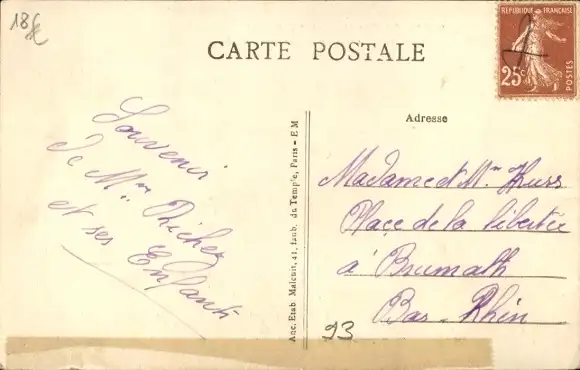 18€
CARTE POSTALE
REPUBLIQUE FRANÇAISE
25c
POSTES
Adresse
Souvenir
de Mme Richez
et ses Enfants
Anc. Etab. Malcuit, 41, faub. du Temple, Paris - E M
Madame et Mr
Place de la liberté
à Brumath
Bas-Rhin
93